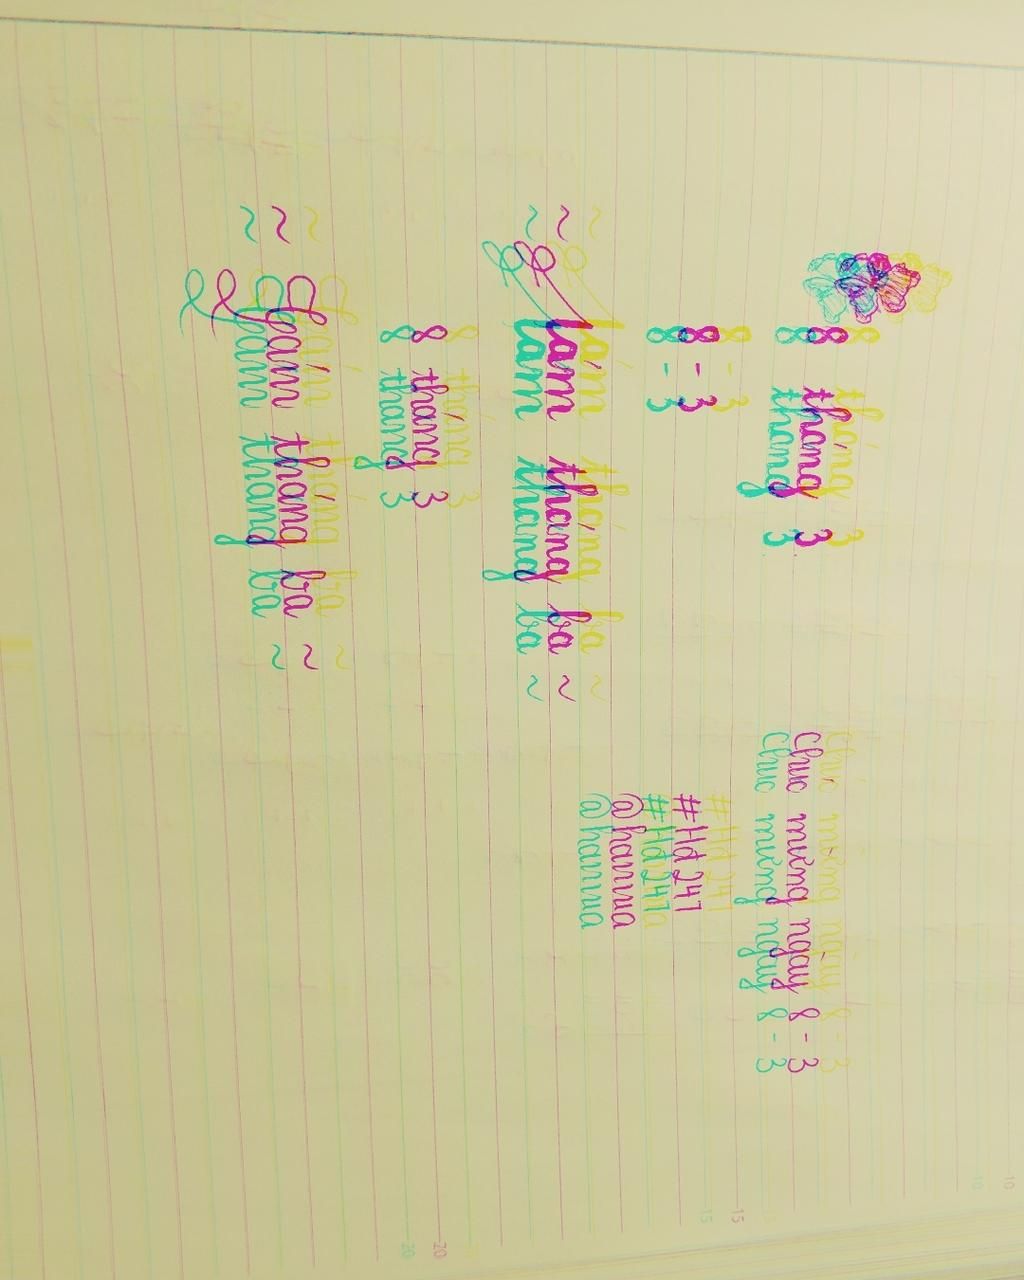 8 tháng 3
Chúc mừng ngày 8 - 3
8 - 3
#Hd 247
@hannua
~ Tám tháng ba ~
8 tháng 3
~ Tám tháng ba ~
10
15
20